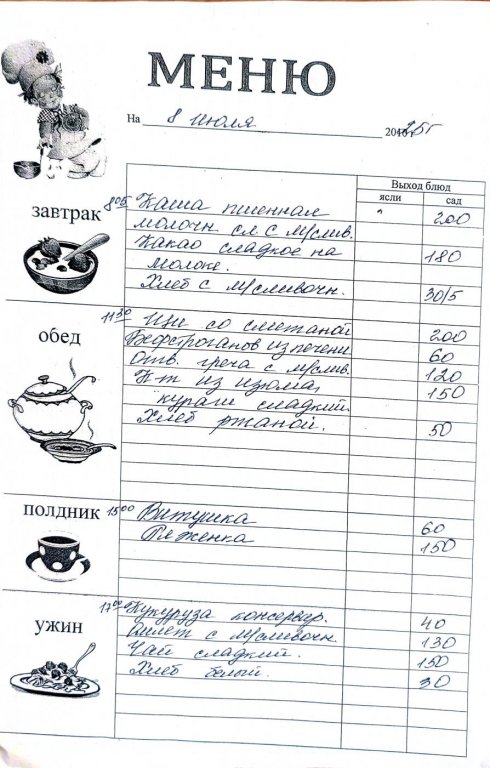 МЕНЮ
На 8 июля 2025г
Выход блюд
ясли сад
завтрак 8 05 Каша пшенная 200
молочн. сл с м/слив.
Какао сладкое на 180
молоке.
Хлеб с м/сливочн. 30/5
обед 11 30 Щи со сметаной 200
Бефстроганов из печени 60
Отв. греча с м/слив. 120
К-т из изюма, 150
кураги сладкий.
Хлеб ржаной. 50
полдник 15 00 Витушка 60
Ряженка 150
ужин 17 00 Кукуруза консервир. 40
Омлет с м/сливочн. 130
Чай сладкий. 150
Хлеб белый. 30